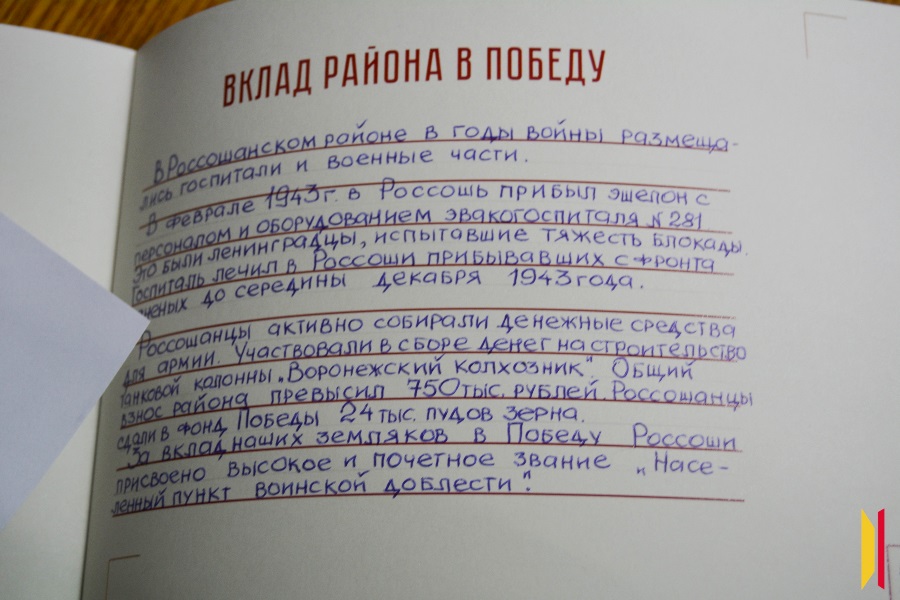 ВКЛАД РАЙОНА В ПОБЕДУ
В Россошанском районе в годы войны размеща-
лись госпитали и военные части.
В феврале 1943г. в Россошь прибыл эшелон с
персоналом и оборудованием эвакогоспиталя №281
Это были ленинградцы, испытавшие тяжесть блокады.
Госпиталь лечил в Россоши прибывавших с фронта
неных до середины декабря 1943 года.
Россошанцы активно собирали денежные средства
для армии. Участвовали в сборе денег на строительство
танковой колонны „Воронежский колхозник". Общий
взнос района превысил 750тыс. рублей. Россошанцы
сдали в фонд Победы 24тыс. пудов зерна.
За вклад наших земляков в Победу Россоши
присвоено высокое и почетное звание „Насе-
ленный пункт воинской доблести".